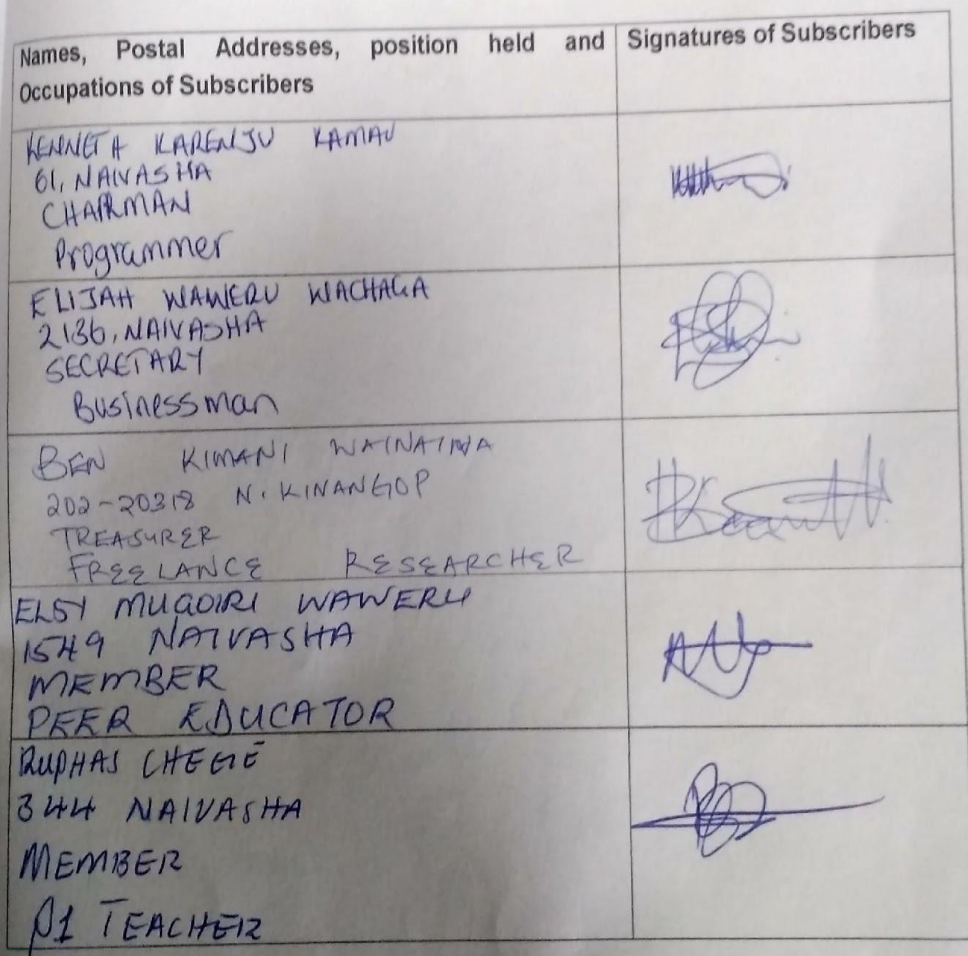 Names, Postal Addresses, position held and
Occupations of Subscribers
Signatures of Subscribers
KENNETH KARENJU KAMAU
61, NAIVASHA
CHAIRMAN
Programmer
ELIJAH WAWERU WACHAGA
2136, NAIVASHA
SECRETARY
Businessman
BEN KIMANI WAINAINA
202-20318 N. KINANGOP
TREASURER
FREELANCE RESEARCHER
ELSY MUGOIRI WAWERU
1549 NAIVASHA
MEMBER
PEER EDUCATOR
RUPHAS CHEGE
344 NAIVASHA
MEMBER
P1 TEACHER